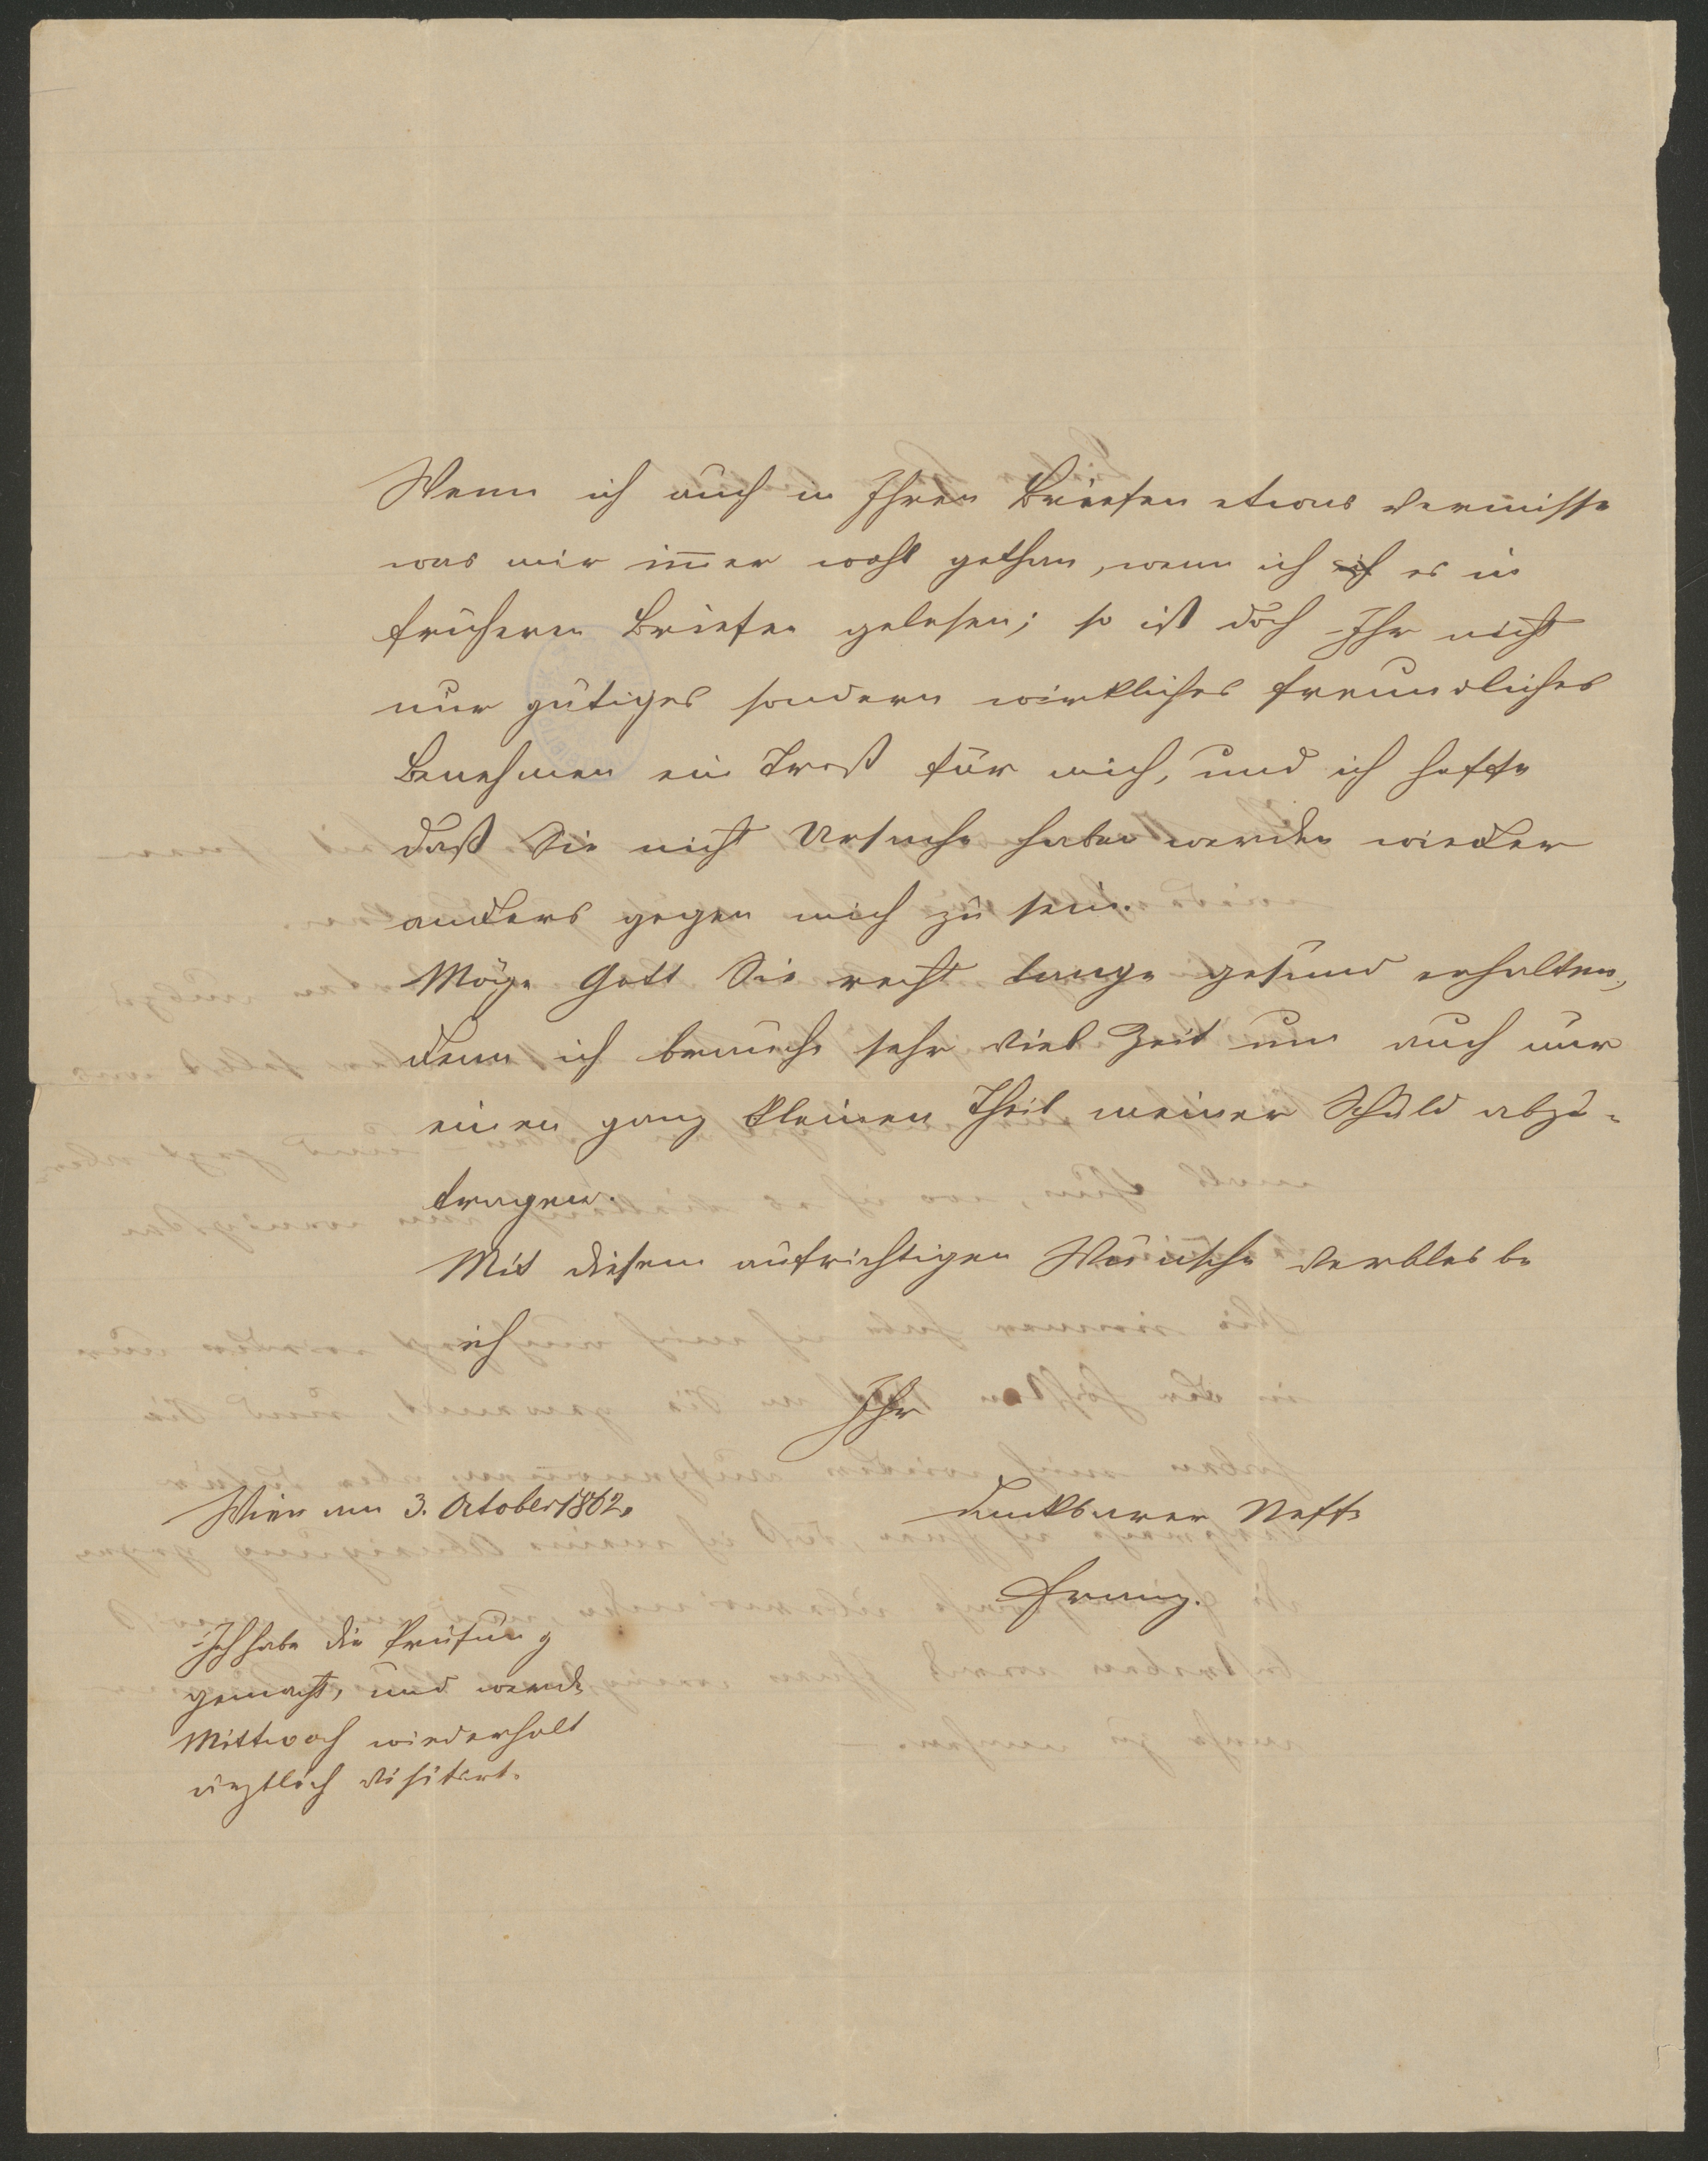 Wenn ich auch in Ihren Briefen etwas vermisse
was mir im̄er wohl gethan, wenn ich ich es in
früheren Briefen gelesen; so ist doch Ihr nicht
nur gütiges sondern wirkliches freundliches
Benehmen ein Trost für mich, und ich hoffe
daß Sie nicht Ursache haben werden wieder
anders gegen mich zu sein.
Möge Gott Sie recht lange gesund erhalten,
denn ich brauche sehr viel Zeit um auch nur
einen ganz kleinen Theil meiner Schuld abzu-
tragen.
Mit diesem aufrichtigen Wunsche verbleibe
ich
Ihr
dankbarer Neffe
Franz.
Wien am 3. October 1862.
Ich habe die Prüfung
gemacht, und werde
Mittwoch wiederholt
ärztlich visitirt.